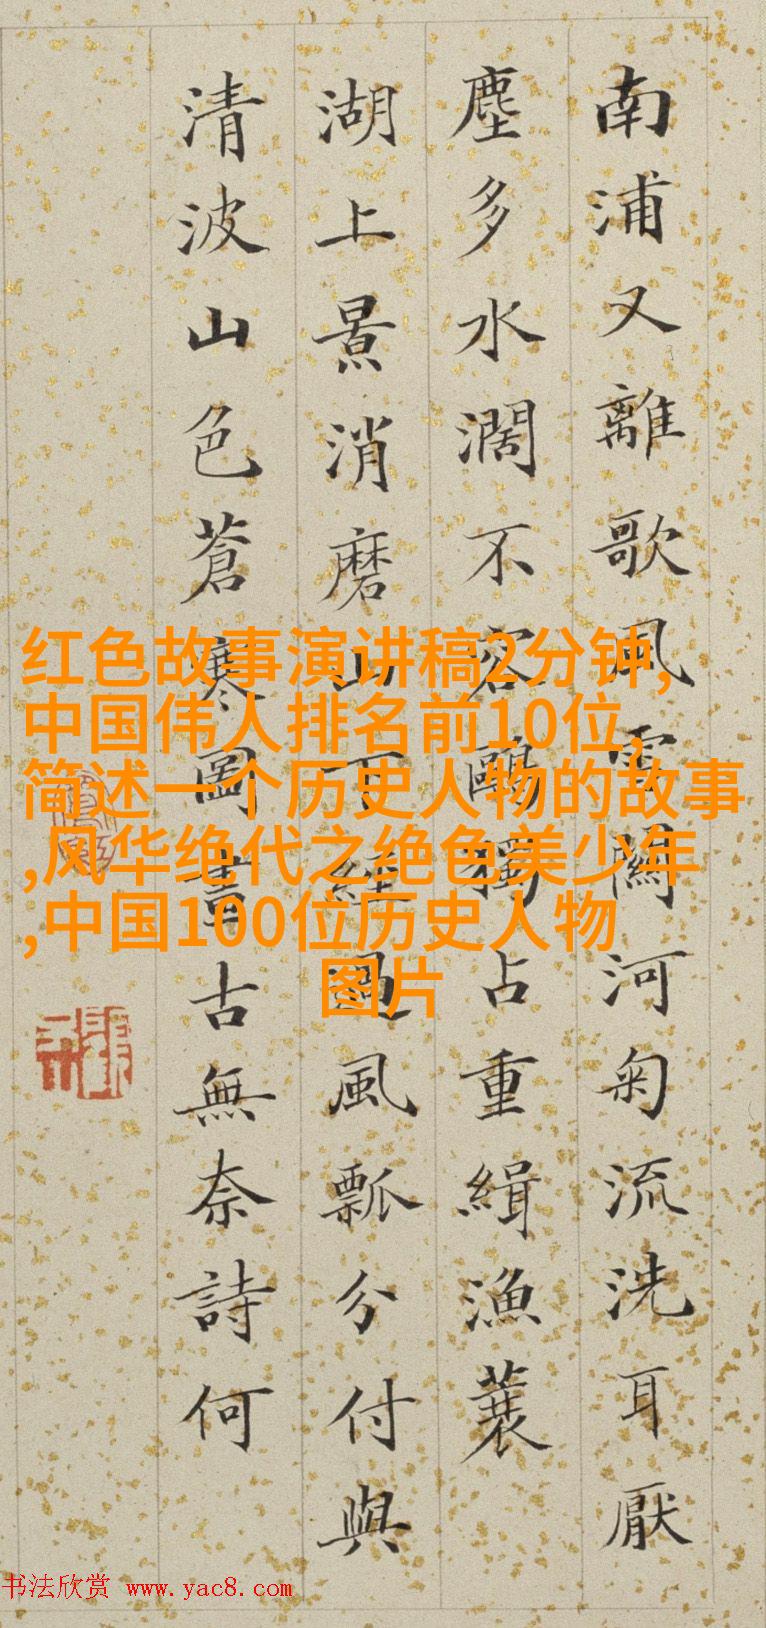 南浦又離歌風雪關河匊流洗耳厭
塵多水濶不容鷗獨占重緝漁蓑
湖上景消磨山下經過風瓢分付與
清波山色蒼寒圖畫古無奈詩何
红色故事演讲稿2分钟,
中国伟人排名前10位,
简述一个历史人物的故事
,风华绝代之绝色美少年
,中国100位历史人物
图片
书法欣赏 www.yac8.com